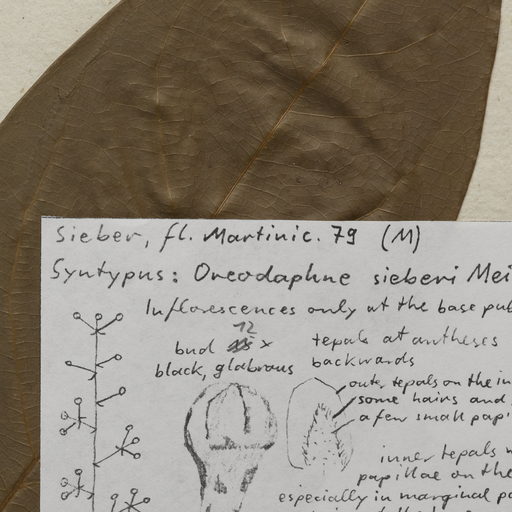 Sieber, fl. Martinic. 79 (M)
Syntypus: Oreodaphne sieberi Mei
Inflorescences only at the base pub
12
bud x tepals at antheses
black, glabrous backwards
outer tepals on the in
some hairs and
a few small papi
inner tepals
papillae on the
especially in marginal pa